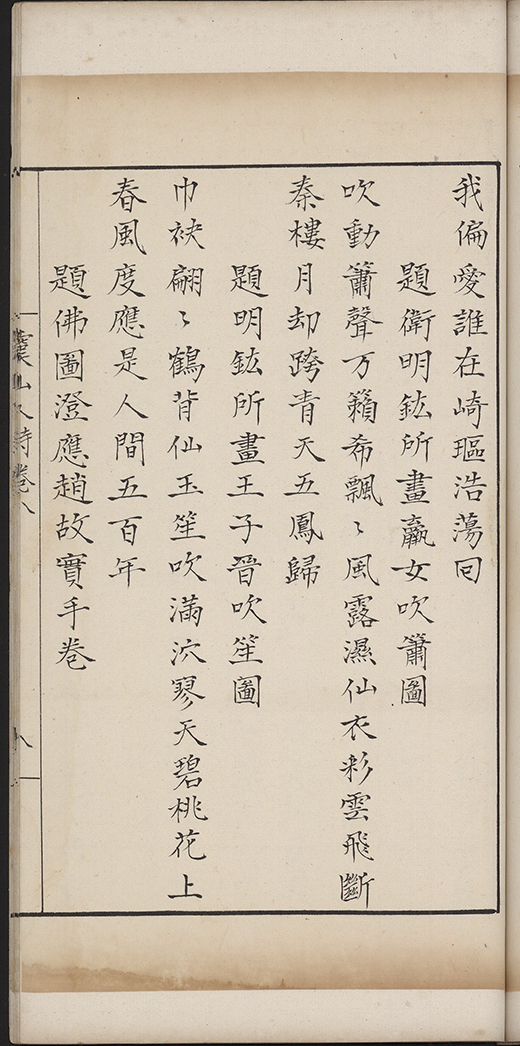 我偏愛誰在崎嶇浩蕩囘
題衛明鉉所畫嬴女吹簫圖
吹動簫聲万籟希飄〻風露濕仙衣彩雲飛斷
秦樓月却跨青天五鳳歸
題明鉉所畫王子晉吹笙圖
巾袂翩〻鶴背仙玉笙吹滿泬寥天碧桃花上
春風度應是人間五百年
題佛圖澄應趙故實手卷
人詩卷八
八